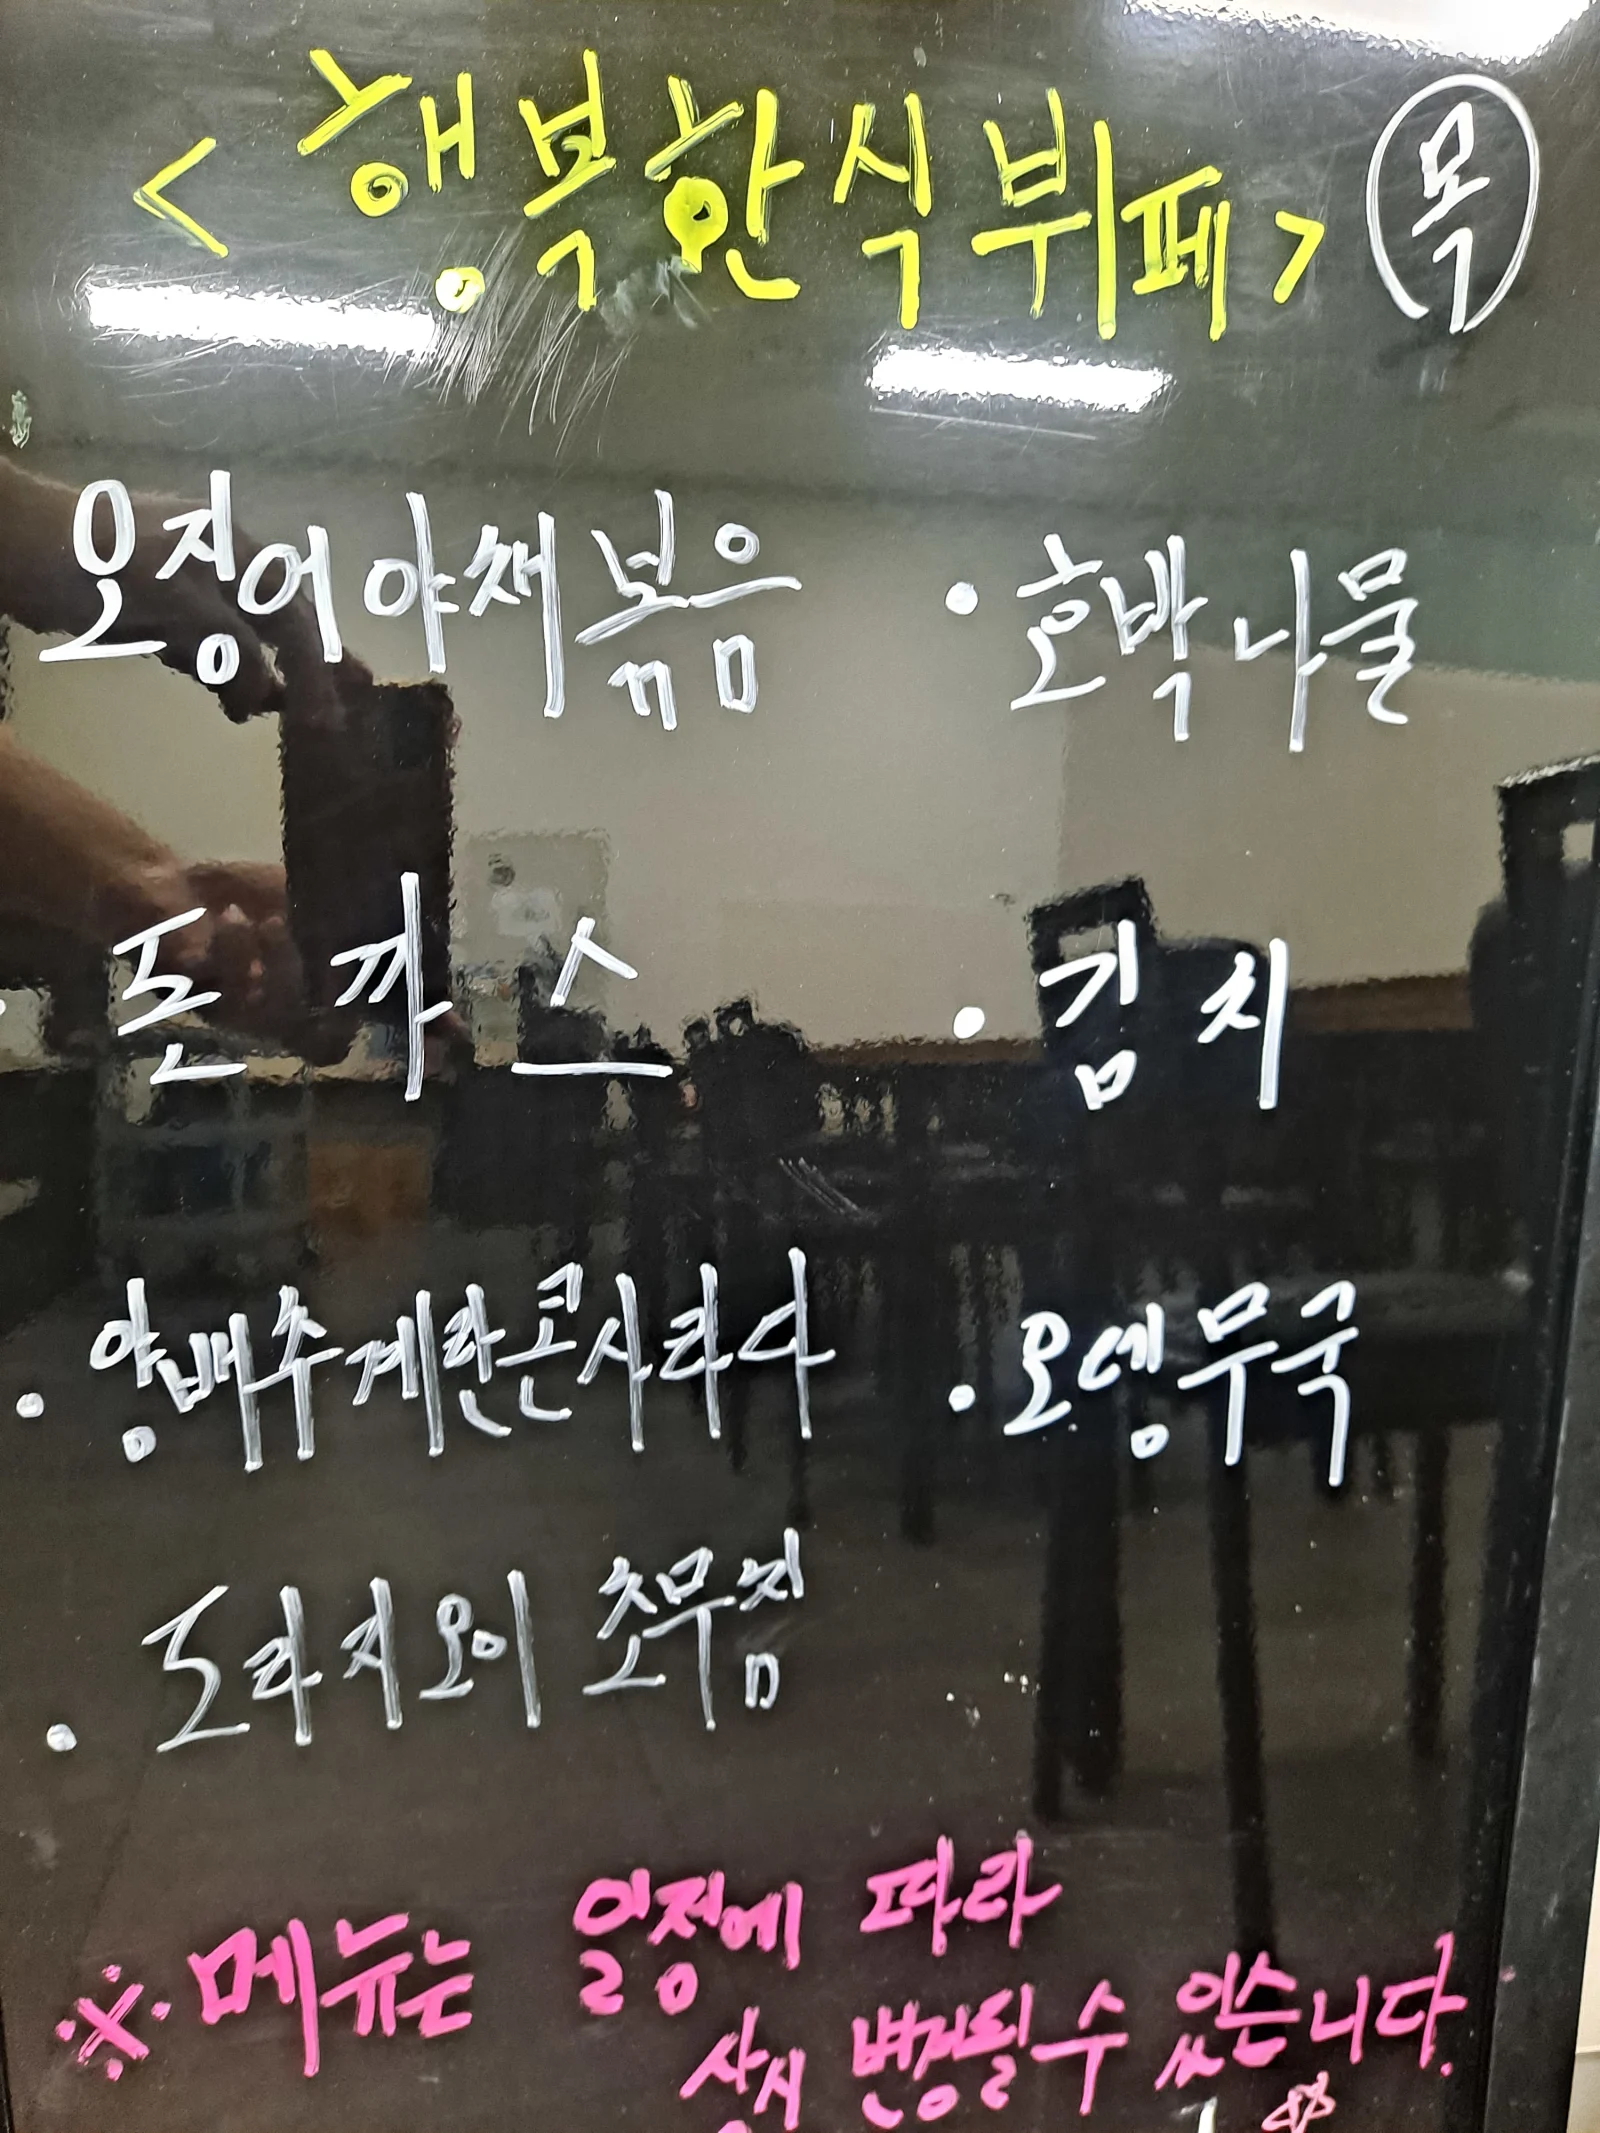 <행복한식뷔페> 목
오징어야채볶음
· 호박나물
· 돈까스
· 김치
· 양배추계란콘사라다
· 오뎅무국
· 도라지오이 초무침
※ 메뉴는 일정에 따라
상시 변경될 수 있습니다.